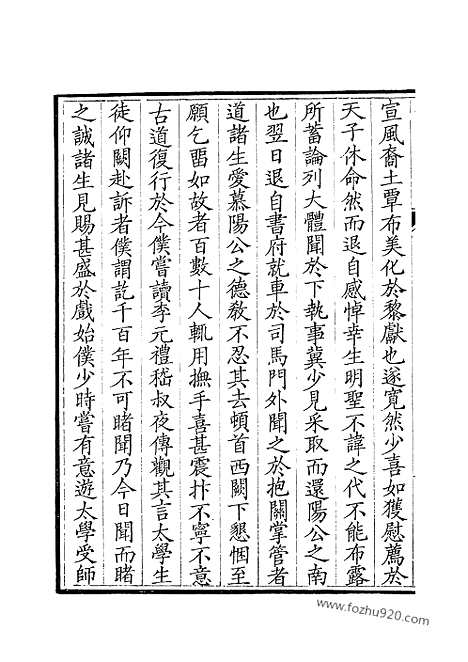 宣風裔土覃布美化於黎獻也遂寬然少喜如獲慰薦於
天子休命然而退自感悼幸生明聖不諱之代不能布露
所蓄論列大體聞於下執事冀少見采取而還陽公之南
也翌日退自書府就車於司馬門外聞之於抱關掌管者
道諸生愛慕陽公之德教不忍其去頓首西闕下懇悃至
願乞畱如故者百數十人輒用撫手喜甚震抃不寧不意
古道復行於今僕嘗讀李元禮嵇叔夜傳觀其言太學生
徒仰闕赴訴者僕謂訖千百年不可睹聞乃今日聞而睹
之誠諸生見賜甚盛於戲始僕少時嘗有意遊太學受師
www.fozhu920.com